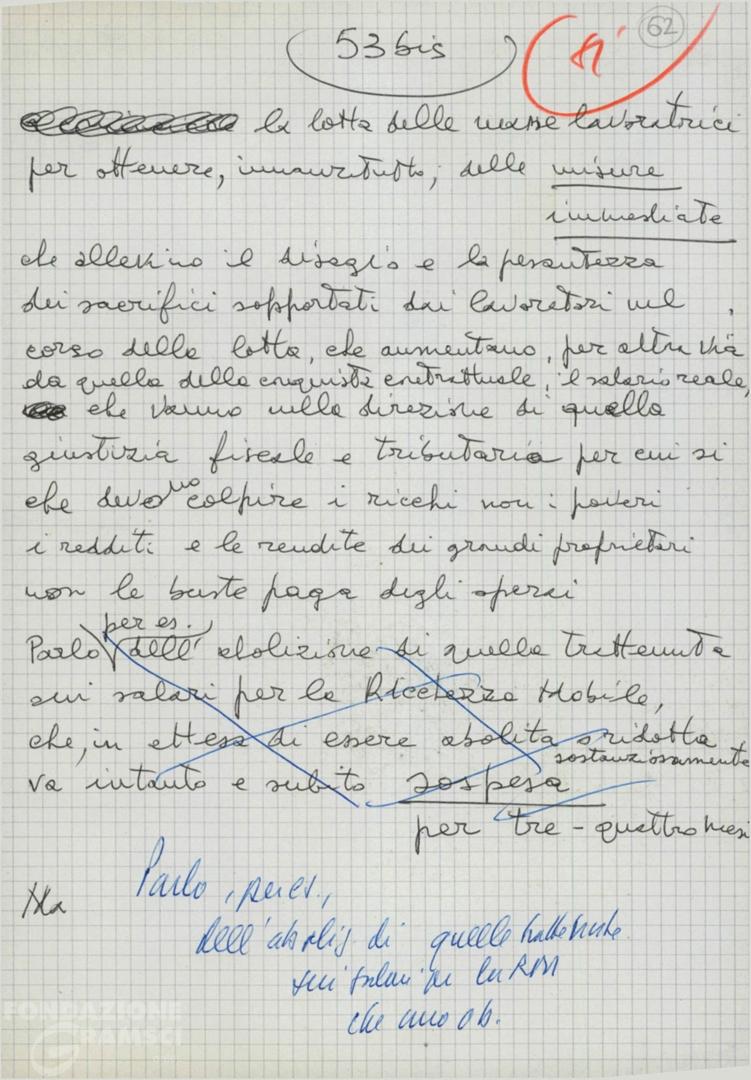 53 bis
sì
62
la lotta delle masse lavoratrici
per ottenere, innanzitutto, delle misure
immediate
che allevino il disagio e la pesantezza
dei sacrifici sopportati dai lavoratori nel
corso della lotta, che aumentano, per altra via
da quella della conquista contrattuale, il salario reale,
che vanno nella direzione di quella
giustizia fiscale e tributaria per cui si
che devono colpire i ricchi non i poveri
i redditi e le rendite dei grandi proprietari
non le buste paga degli operai
per es.
Parlo dell'abolizione di quella trattenuta
sui salari per la Ricchezza Mobile,
che, in attesa di essere abolita o ridotta
sostanziosamente
va intanto e subito sospesa
per tre-quattro mesi
Ma
Parlo, per es.,
dell'aboliz. di quelle trattenute
sui salari per la RM
che
FONDAZIONE
GRAMSCI